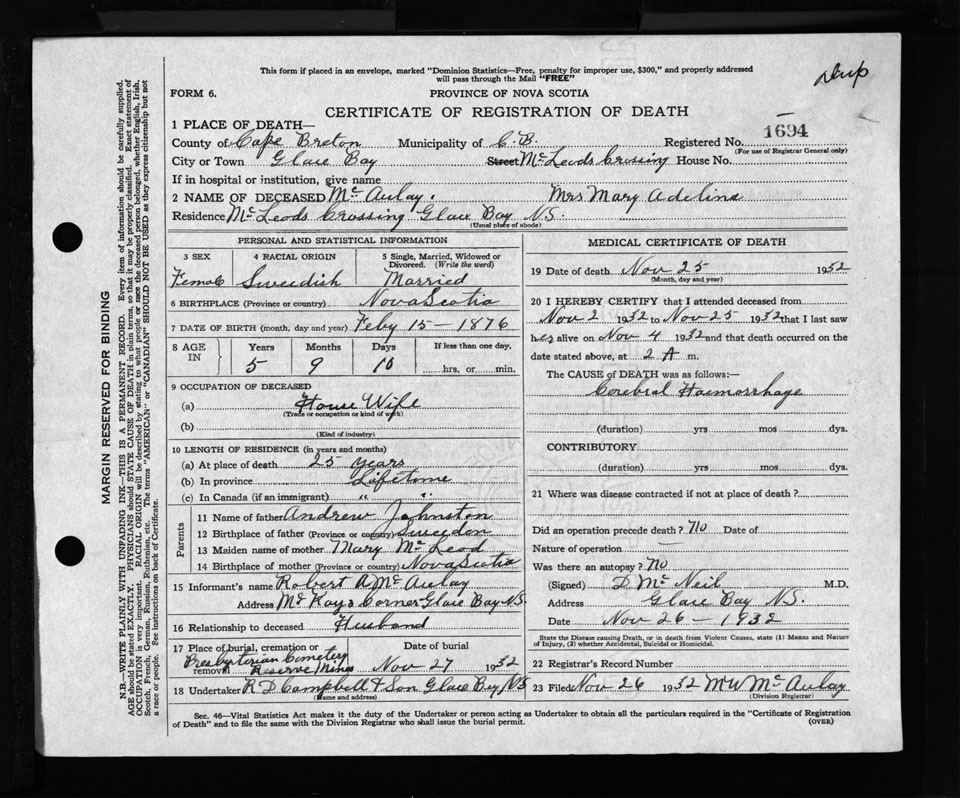 Dup
This form if placed in an envelope, marked "Dominion Statistics—Free, penalty for improper use, $300," and properly addressed
will pass through the Mail "FREE"
FORM 6. PROVINCE OF NOVA SCOTIA
CERTIFICATE OF REGISTRATION OF DEATH
1 PLACE OF DEATH—
County of Cape Breton Municipality of C.B. Registered No. 1694
(For use of Registrar General only)
City or Town Glace Bay Street McLeods Crossing House No.
If in hospital or institution, give name
2 NAME OF DECEASED McAulay. Mrs Mary Adelina
Residence McLeods Crossing Glace Bay N.S.
(Usual place of abode)
PERSONAL AND STATISTICAL INFORMATION
3 SEX 4 RACIAL ORIGIN 5 Single, Married, Widowed or Divorced. (Write the word)
Female Sweedish Married
6 BIRTHPLACE (Province or country) Nova Scotia
7 DATE OF BIRTH (month, day and year) Feby 15—1876
8 AGE IN Years Months Days If less than one day,
5 9 10 hrs. or min.
9 OCCUPATION OF DECEASED
(a) House Wife
(Trade or occupation or kind of work)
(b)
(Kind of industry)
10 LENGTH OF RESIDENCE (in years and months)
(a) At place of death 25 years
(b) In province Lifetime
(c) In Canada (if an immigrant) " "
Parents
11 Name of father Andrew Johnston
12 Birthplace of father (Province or country) Sweeden
13 Maiden name of mother Mary McLeod
14 Birthplace of mother (Province or country) Nova Scotia
15 Informant's name Robert A McAulay
Address McKays Corner Glace Bay N.S.
16 Relationship to deceased Husband
17 Place of burial, cremation or removal Date of burial
Presbyterian Cemetery
Reserve Mines Nov 27 1932
18 Undertaker R D Campbell & Son Glace Bay N.S
(Name and address)
MEDICAL CERTIFICATE OF DEATH
19 Date of death Nov 25 1932
(Month, day and year)
20 I HEREBY CERTIFY that I attended deceased from
Nov 2 1932 to Nov 25 1932 that I last saw
her alive on Nov 4 1932 and that death occurred on the
date stated above, at 2 A m.
The CAUSE of DEATH was as follows:—
Cerebral Haemorrhage
(duration) yrs mos dys.
CONTRIBUTORY
(duration) yrs mos dys.
21 Where was disease contracted if not at place of death?
Did an operation precede death? No Date of
Nature of operation
Was there an autopsy? No
(Signed) D McNeil M.D.
Address Glace Bay N.S.
Date Nov 26—1932
State the Disease causing Death, or in death from Violent Causes, state (1) Means and Nature
of Injury, (2) whether Accidental, Suicidal or Homicidal.
22 Registrar's Record Number
23 Filed Nov 26 1932 M W McAulay
(Division Registrar)
Sec. 46—Vital Statistics Act makes it the duty of the Undertaker or person acting as Undertaker to obtain all the particulars required in the "Certificate of Registration
of Death" and to file the same with the Division Registrar who shall issue the burial permit. (OVER)
MARGIN RESERVED FOR BINDING
N.B.—WRITE PLAINLY WITH UNFADING INK—THIS IS A PERMANENT RECORD. Every item of information should be carefully supplied.
AGE should be stated EXACTLY. PHYSICIANS should STATE CAUSE OF DEATH in plain terms, so that it may be properly classified. Exact statement of
OCCUPATION is very important. RACIAL ORIGIN will be described by stating to what people or race the deceased person belonged, whether English, Irish,
Scotch, French, German, Russian, Ruthenian, etc. The terms "AMERICAN" or "CANADIAN" SHOULD NOT BE USED as they express citizenship but not
a race or people. See instructions on back of Certificate.